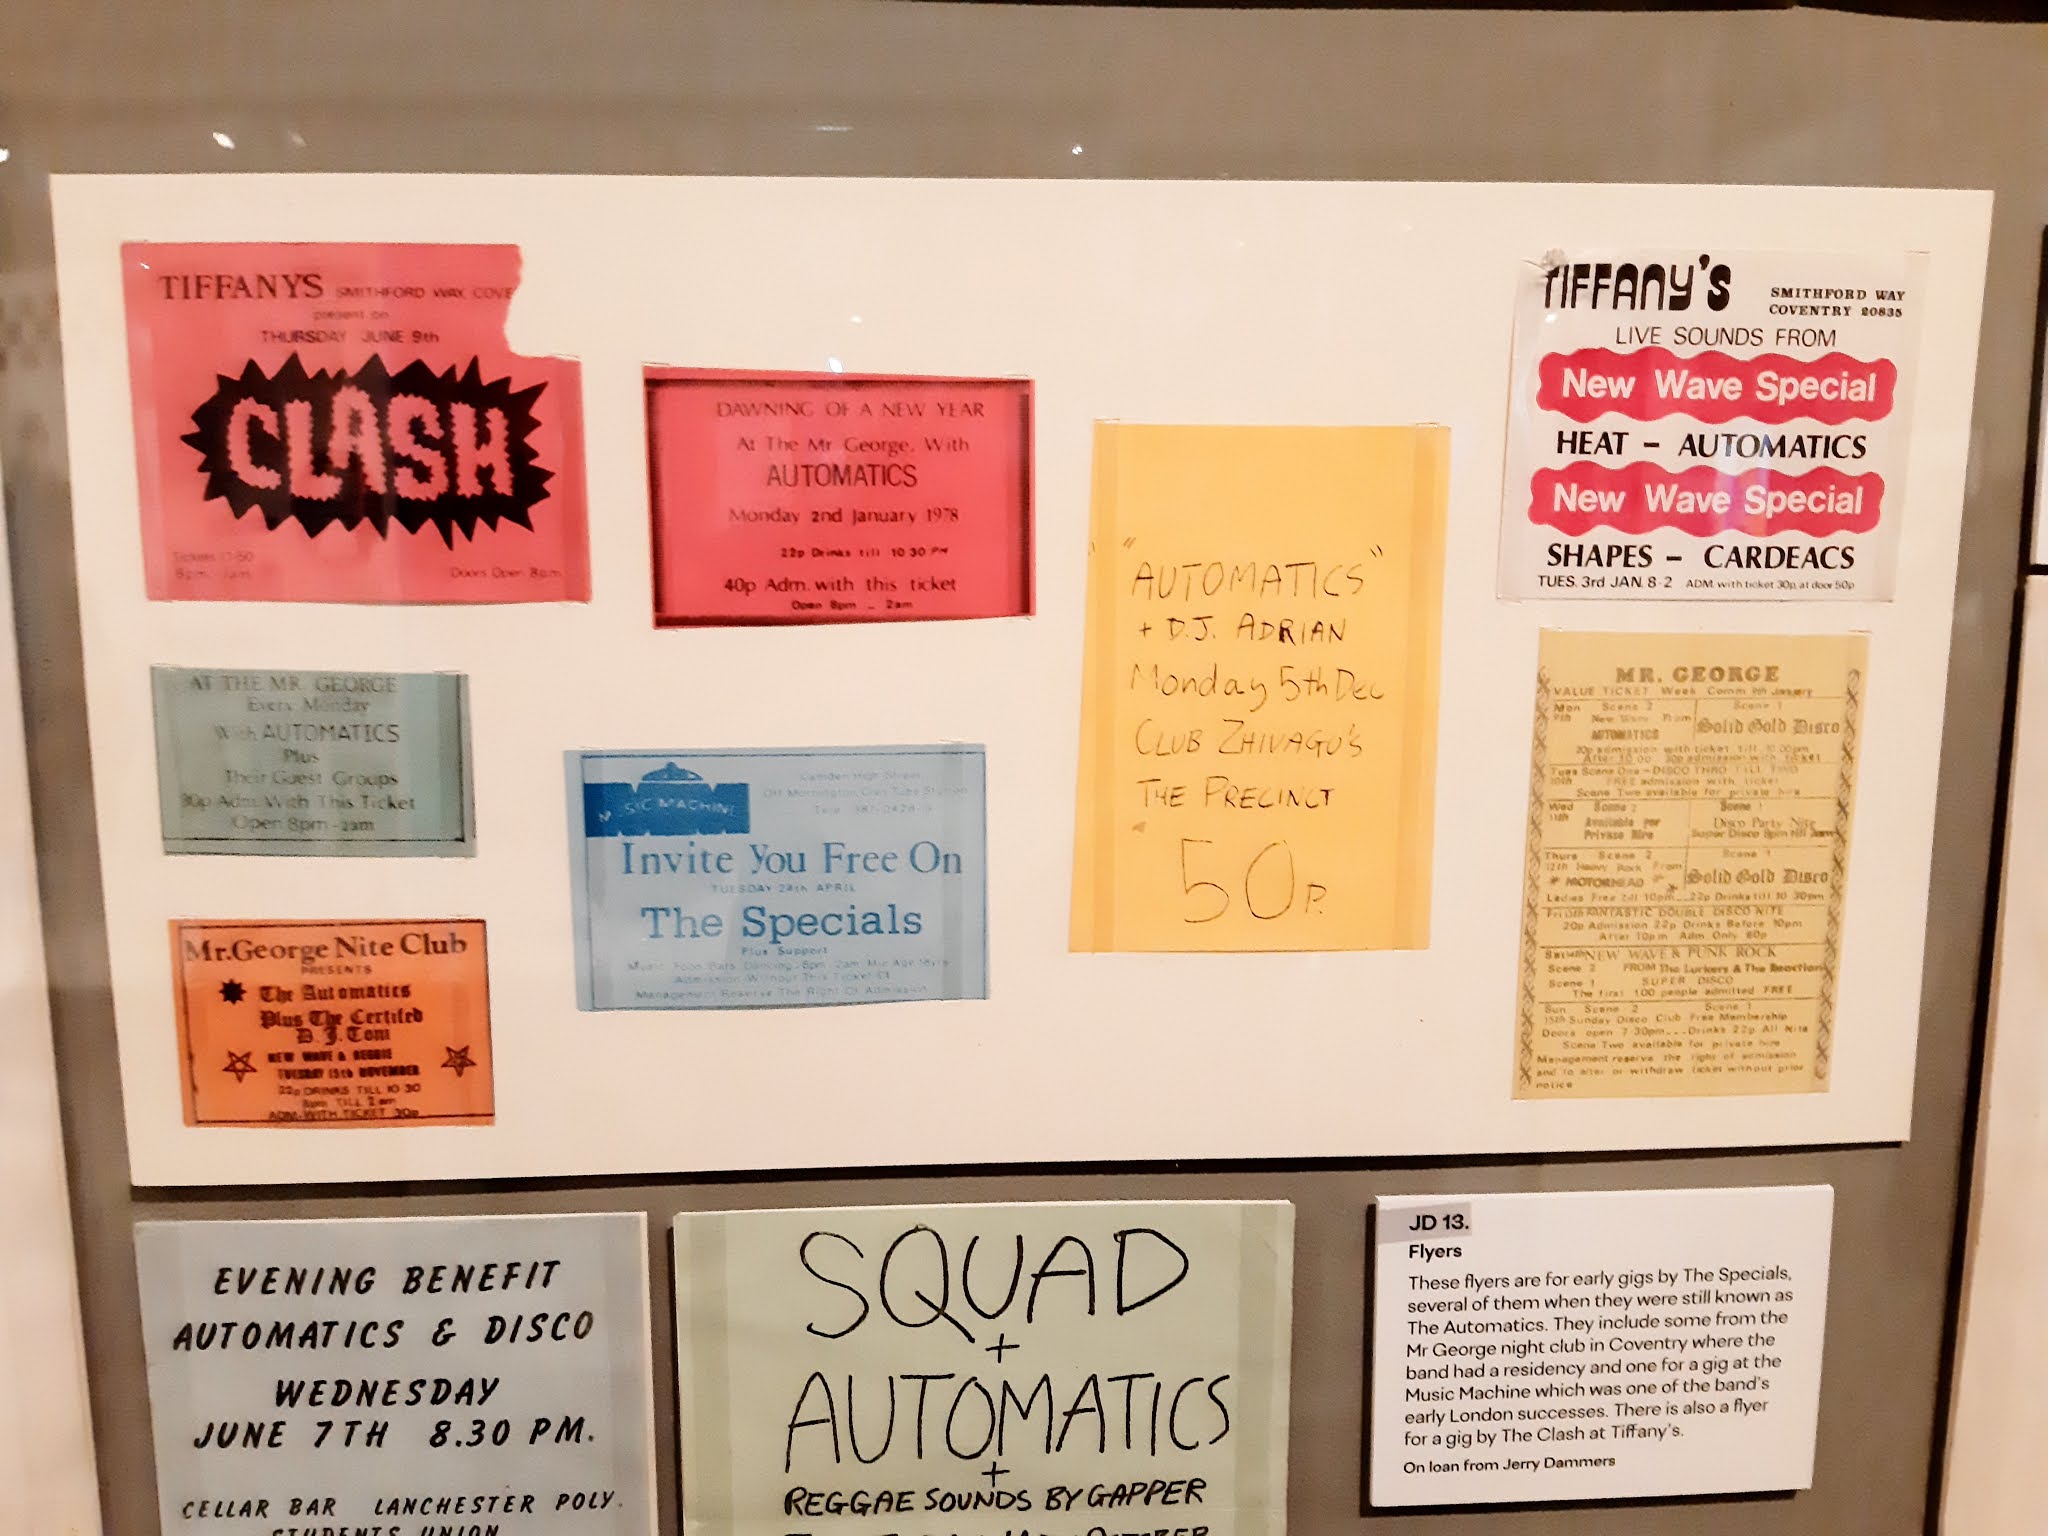 TIFFANYS SMITHFORD WAY, COVE
present on
THURSDAY JUNE 9th
CLASH
8pm - 1am
Doors Open 8pm
DAWNING OF A NEW YEAR
At The Mr George, With
AUTOMATICS
Monday 2nd January 1978
22p Drinks till 10 30 PM
40p Adm. with this ticket
Open 8pm - 2am
"AUTOMATICS"
+ D.J. ADRIAN
Monday 5th Dec
CLUB ZHIVAGO'S
THE PRECINCT
50p.
TIFFANY'S SMITHFORD WAY
COVENTRY 20835
LIVE SOUNDS FROM
New Wave Special
HEAT - AUTOMATICS
New Wave Special
SHAPES - CARDEACS
TUES. 3rd JAN. 8-2 ADM. with ticket 30p, at door 50p
AT THE MR. GEORGE
Every Monday
With AUTOMATICS
Plus
Their Guest Groups
30p Adm. With This Ticket
Open 8pm - 2am
MUSIC MACHINE
Camden High Street
Invite You Free On
TUESDAY 24th APRIL
The Specials
Plus Support
Admission Without This Ticket £1
Management Reserve The Right Of Admission
Mr. George Nite Club
PRESENTS
The Automatics
Plus The Certifed
D. J. Tom
NEW WAVE & REGGIE
TUESDAY 15th NOVEMBER
22p DRINKS TILL 10 30
8pm TILL 2 am
ADM-WITH TICKET 30p
MR. GEORGE
VALUE TICKET Week Comm 9th January
Mon Scene 2 Scene 1
9th New Wave From Solid Gold Disco
AUTOMATICS
20p admission with ticket till 10.00pm
After 10 00 30p admission with ticket
Tues Scene One - DISCO THRO TILL TWO
10th FREE admission with ticket
Scene Two available for private hire
Wed Scene 2 Scene 1
11th Available for Disco Party Nite
Private Hire Super Disco 8pm till 2am
Thurs Scene 2 Scene 1
12th Heavy Rock From Solid Gold Disco
MOTORHEAD
Ladies Free till 10pm 22p Drinks till 10 30pm
Fri 13th FANTASTIC DOUBLE DISCO NITE
20p Admission 22p Drinks Before 10pm
After 10pm Adm Only 60p
Sat 14th NEW WAVE & PUNK ROCK
Scene 2 FROM The Lurkers & The Reaction
Scene 1 SUPER DISCO
The first 100 people admitted FREE
Sun Scene 2 Scene 1
15th Sunday Disco Club Free Membership
Doors open 7 30pm...Drinks 22p All Nite
Scene Two available for private hire
Management reserve the right of admission
and to alter or withdraw ticket without prior
notice
EVENING BENEFIT
AUTOMATICS & DISCO
WEDNESDAY
JUNE 7TH 8.30 PM.
CELLAR BAR LANCHESTER POLY.
STUDENTS UNION
SQUAD
+
AUTOMATICS
+
REGGAE SOUNDS BY GAPPER
JD 13.
Flyers
These flyers are for early gigs by The Specials,
several of them when they were still known as
The Automatics. They include some from the
Mr George night club in Coventry where the
band had a residency and one for a gig at the
Music Machine which was one of the band's
early London successes. There is also a flyer
for a gig by The Clash at Tiffany's.
On loan from Jerry Dammers